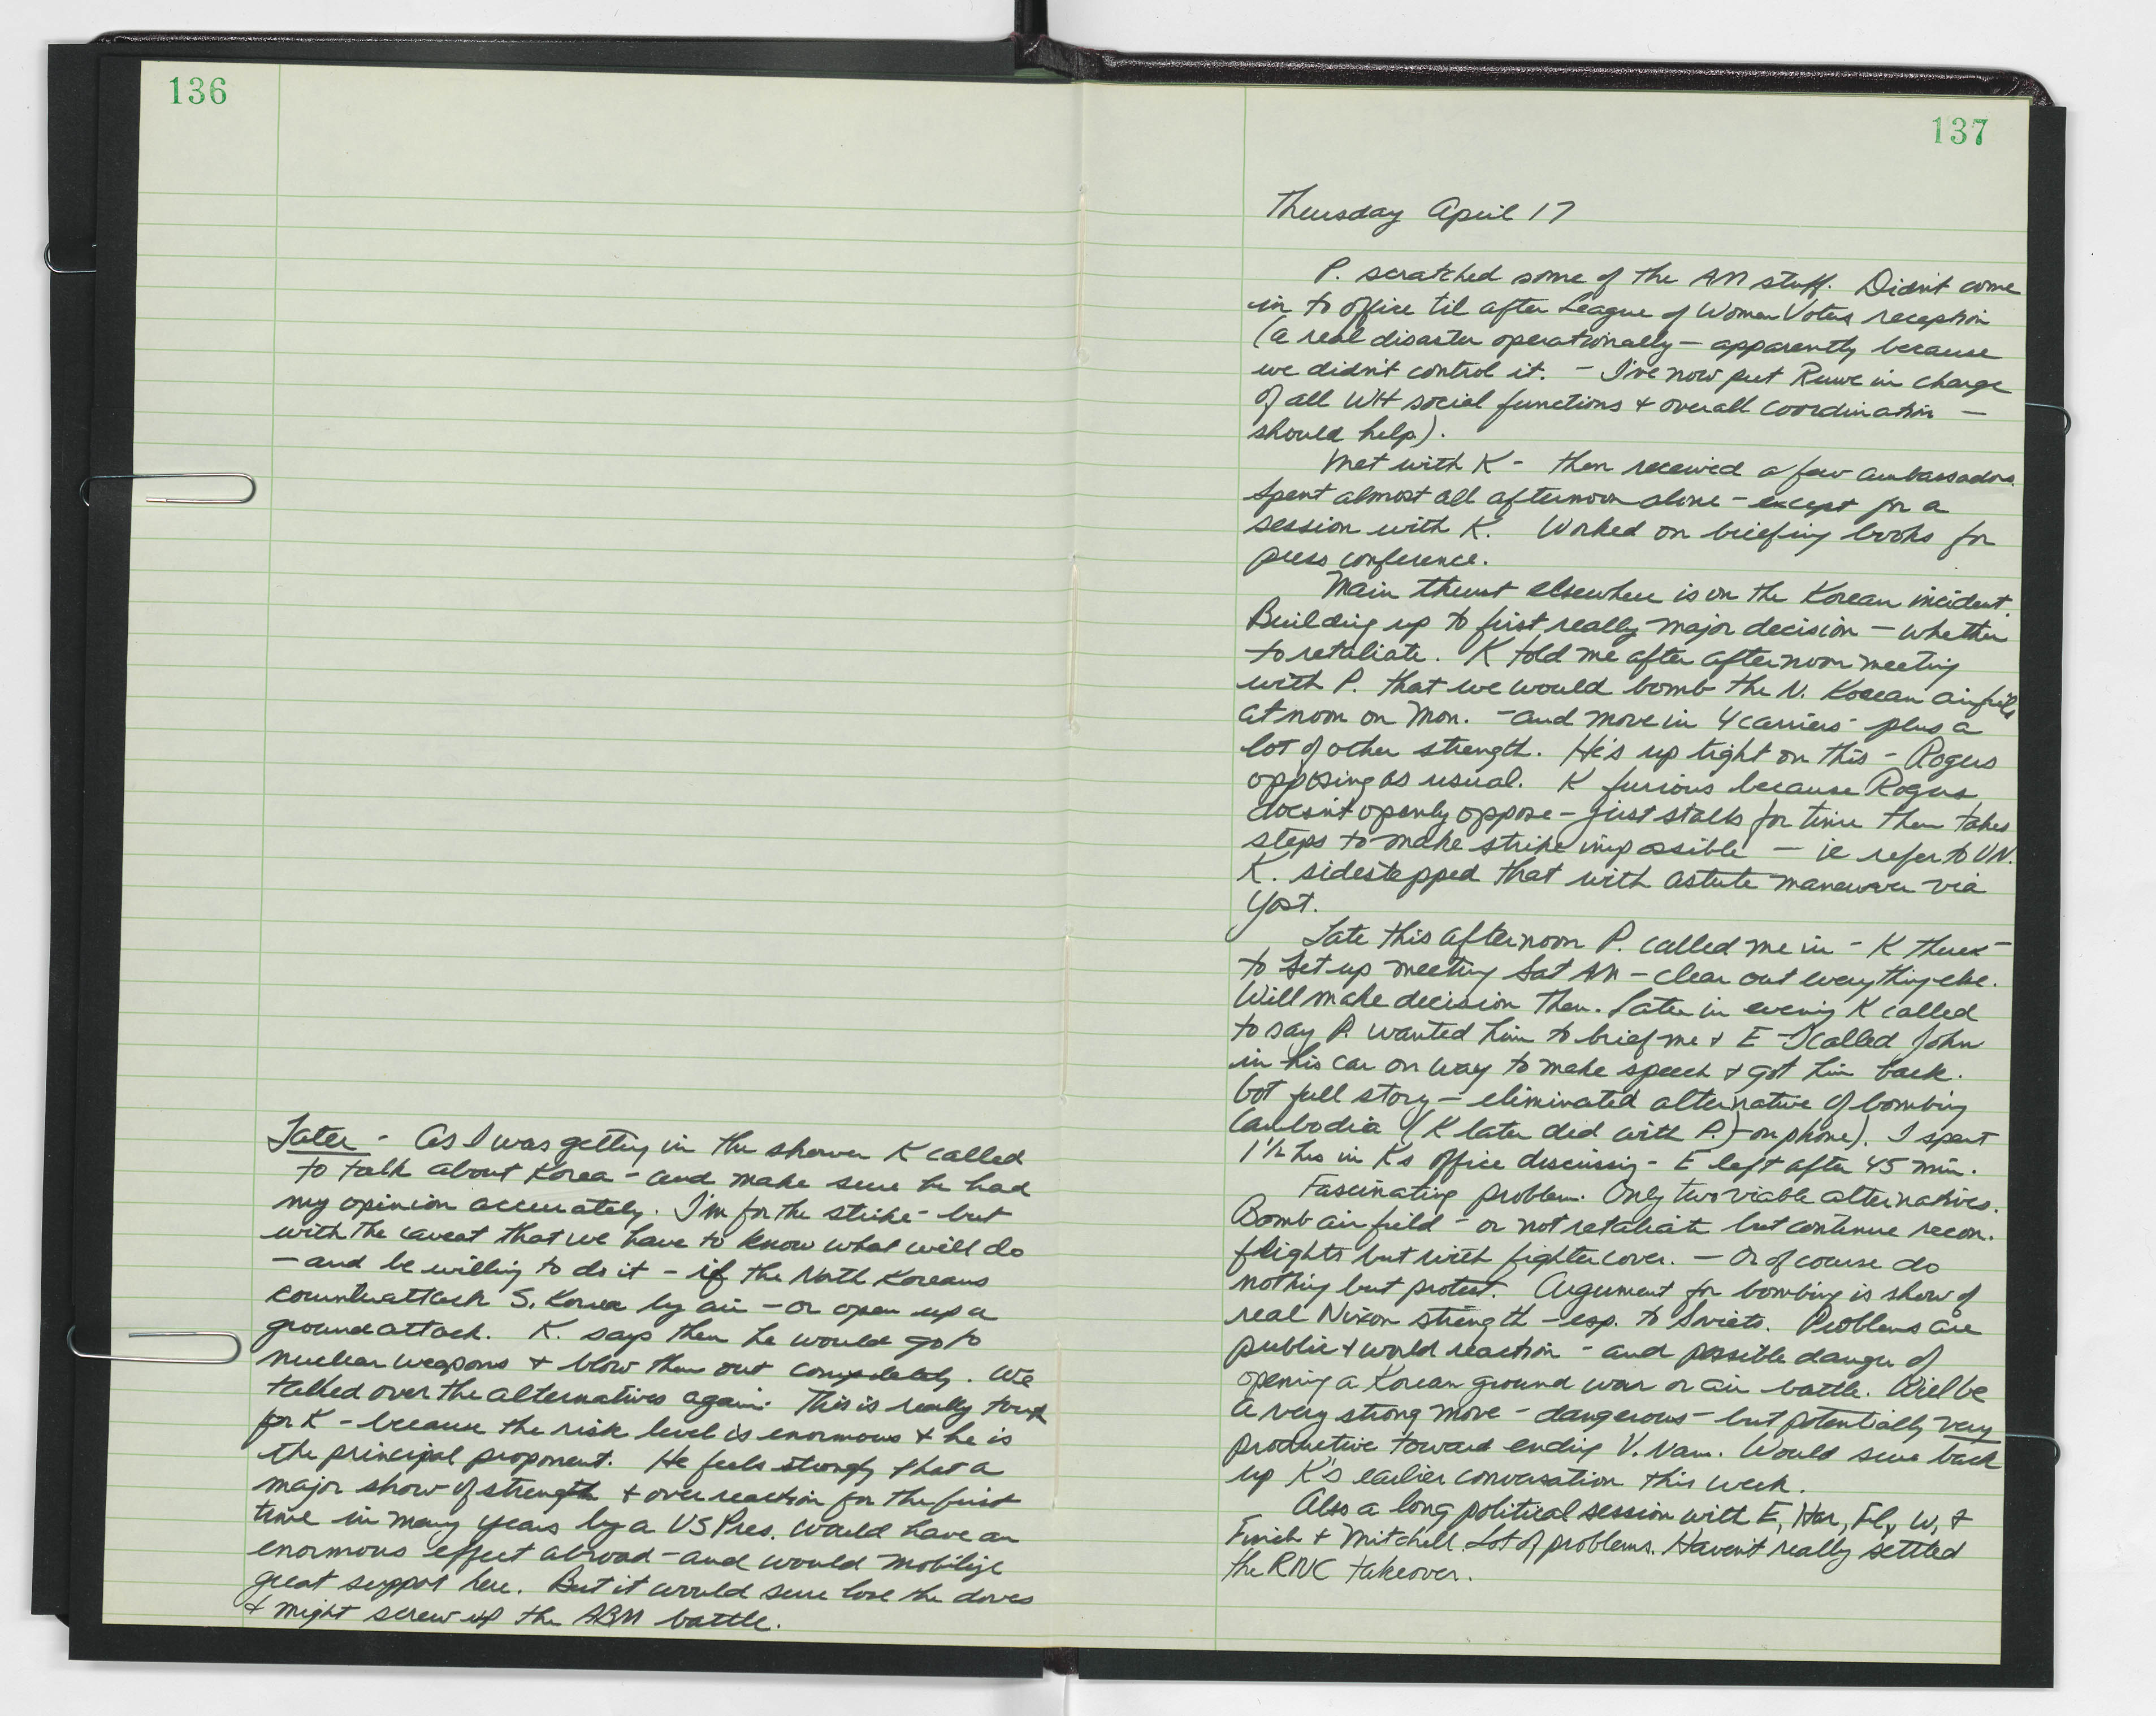 136
Later - As I was getting in the shower K called
to talk about Korea - and make sure he had
my opinion accurately. I'm for the strike - but
with the caveat that we have to know what will do
- and be willing to do it - if the North Koreans
counterattack S. Korea by air - or open up a
ground attack. K. says then he would go to
nuclear weapons + blow them out completely. We
talked over the alternatives again. This is really tough
for K - because the risk level is enormous + he is
the principal proponent. He feels strongly that a
major show of strength + over reaction for the first
time in many years by a US Pres. would have an
enormous effect abroad - and would mobilize
great support here. But it would sure lose the doves
+ might screw up the ABM battle.
137
Thursday April 17
P. scratched some of the AM stuff. Didn't come
in to office til after League of Women Voters reception
(a real disaster operationally - apparently because
we didn't control it. - I've now put Ruwe in charge
of all WH social functions + overall coordination -
should help).
Met with K - then received a few ambassadors.
Spent almost all afternoon alone - except for a
session with K. Worked on briefing books for
press conference.
Main thrust elsewhere is on the Korean incident.
Building up to first really major decision - whether
to retaliate. K told me after afternoon meeting
with P. that we would bomb the N. Korean airfield
at noon on Mon. - and move in 4 carriers - plus a
lot of other strength. He's up tight on this - Rogers
opposing as usual. K furious because Rogers
doesn't openly oppose - just stalls for time then takes
steps to make strike impossible - ie refer to UN.
K. sidestepped that with astute maneuver via
Yost.
Late this afternoon P. called me in - K there -
to set up meeting Sat AM - clear out everything else.
Will make decision then. Later in evening K called
to say P. wanted him to brief me + E - I called John
in his car on way to make speech + got him back.
Got full story - eliminated alternative of bombing
Cambodia (K later did with P. - on phone). I spent
1 1/2 hrs in K's office discussing - E left after 45 min.
Fascinating problem. Only two viable alternatives.
Bomb airfield - or not retaliate but continue recon.
flights but with fighter cover. - Or of course do
nothing but protest. Argument for bombing is show of
real Nixon strength - esp. to Soviets. Problems are
public + world reaction - and possible danger of
opening a Korean ground war or air battle. Will be
a very strong move - dangerous - but potentially very
productive toward ending V. Nam. Would sure back
up K's earlier conversation this week.
Also a long political session with E, Har, Fl, W, +
Finch + Mitchell. Lot of problems. Haven't really settled
the RNC takeover.